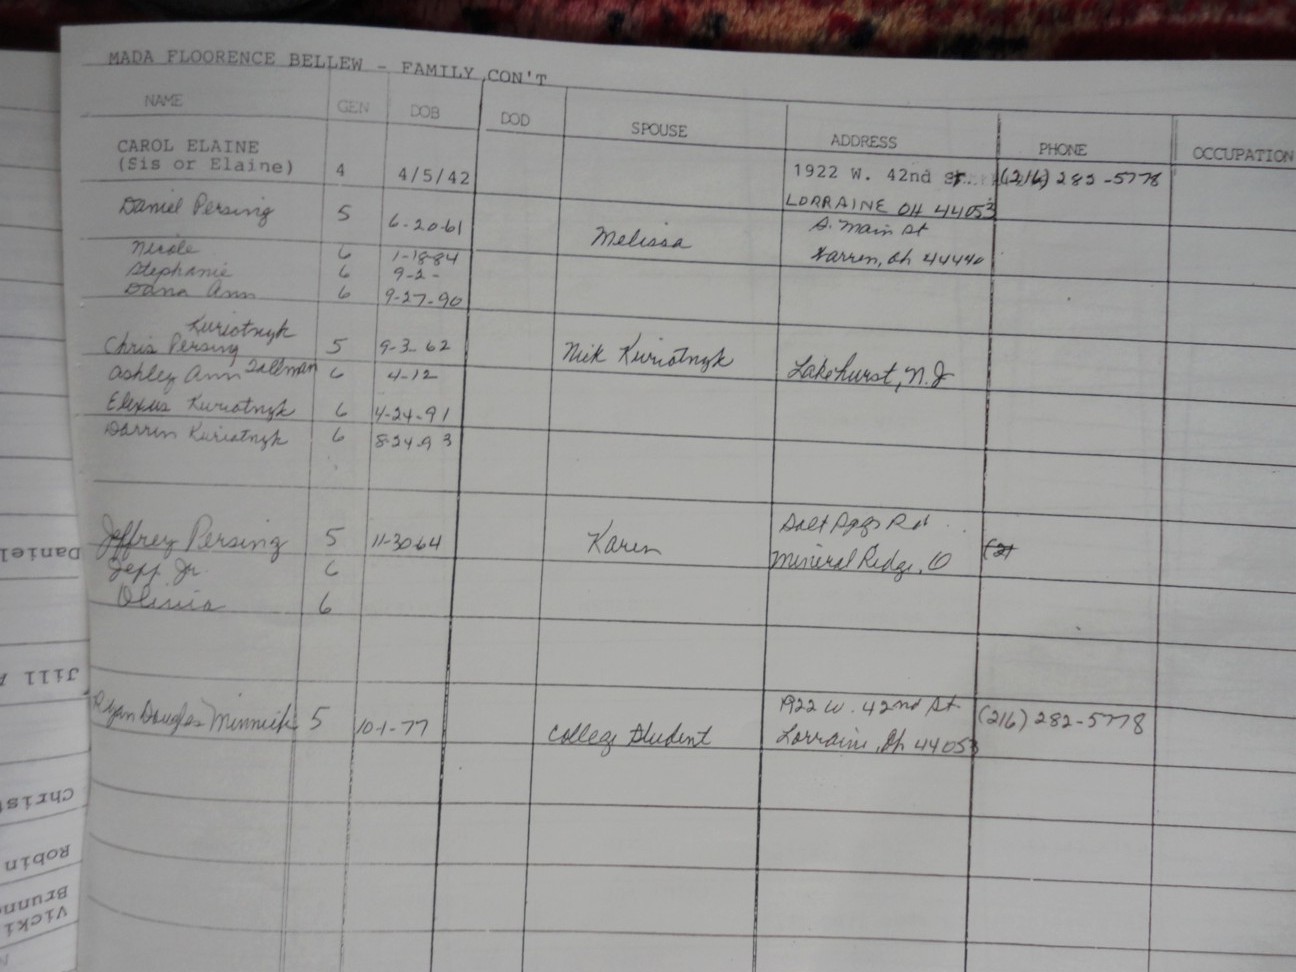 MADA FLOORENCE BELLEW - FAMILY CON'T
NAME GEN DOB DOD SPOUSE ADDRESS PHONE OCCUPATION
CAROL ELAINE
(Sis or Elaine) 4 4/5/42 1922 W. 42nd St. (216) 282-5778
LORRAINE OH 44053
Daniel Persing 5 6-20-61 Melissa S. Main St
Nicole 6 1-18-84 Warren, Oh 44440
Stephanie 6 9-2-
Dana Ann 6 9-27-90
Kuriotnyk
Chris Persing 5 9-3-62 Nick Kuriotnyk Lakehurst, N.J
Ashley Ann Tallman 6 4-12
Elexus Kuriotnyk 6 4-24-91
Darren Kuriotnyk 6 8-24-93
Jeffrey Persing 5 11-30-64 Karen Salt Spgs Rd
Mineral Ridge, O (21
Jeff Jr. 6
Olivia 6
Ryan Douglas Minnick 5 10-1-77 College Student 1922 W. 42nd St (216) 282-5778
Lorraine, Oh 44053
Daniel
Jill A
Christ
Robin
Brunn
Vicki